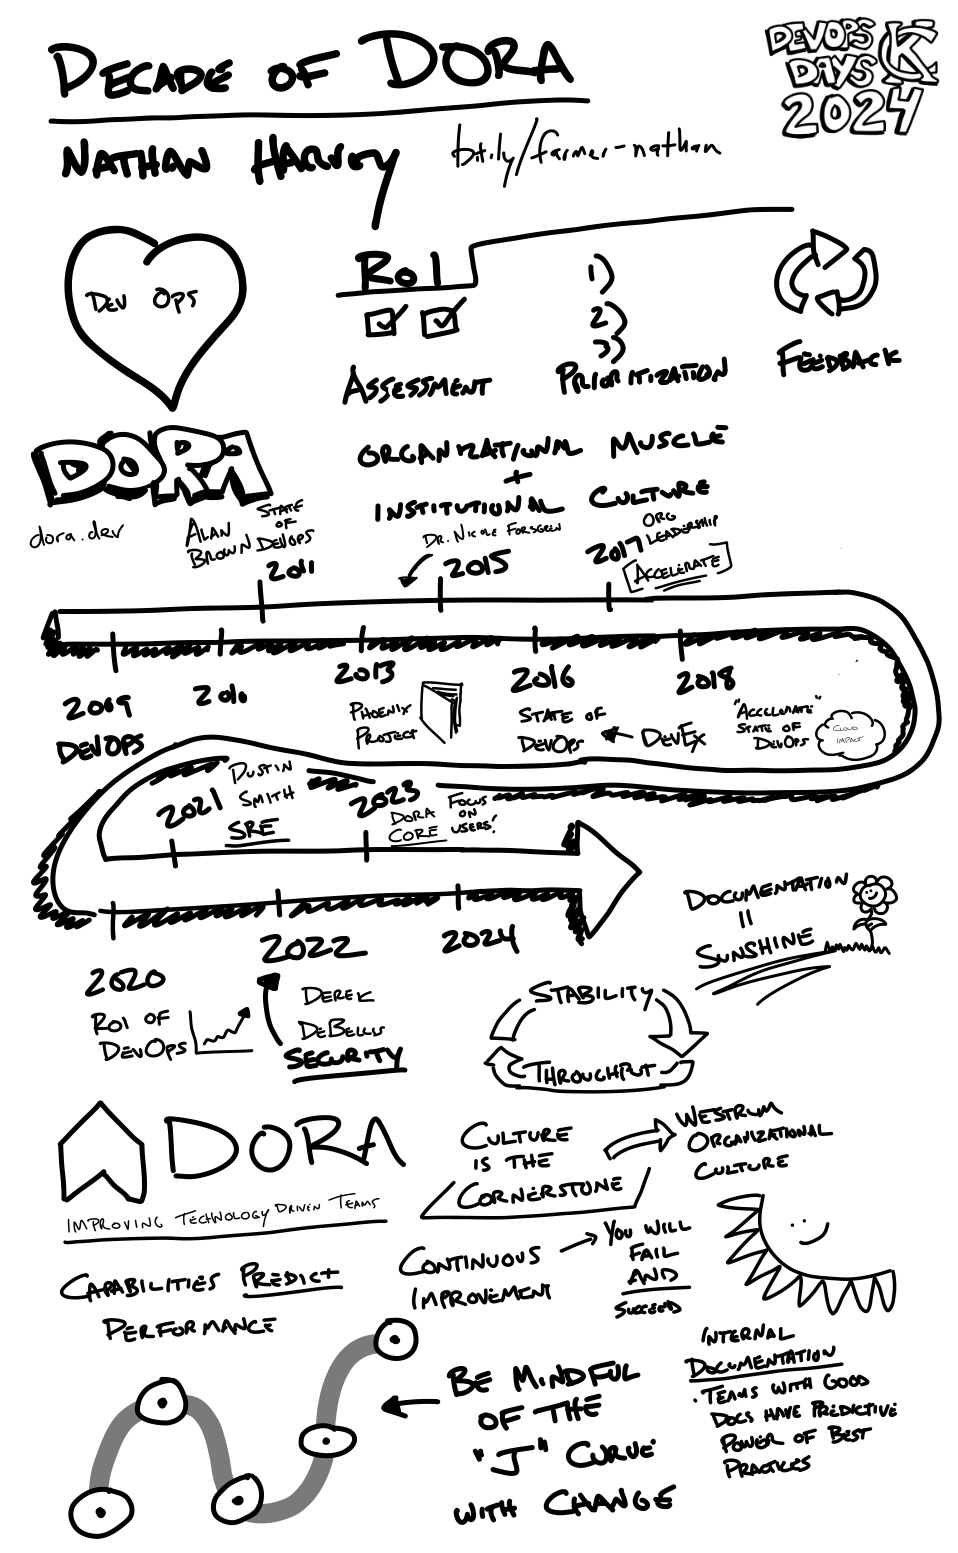 DECADE OF DORA
DEVOPS
DAYS KC
2024
NATHAN HARVEY
bit.ly/farmer-nathan
DEV OPS
ROI
1)
2)
3)
ASSESSMENT
PRIORITIZATION
FEEDBACK
DORA
dora.dev
ORGANIZATIONAL MUSCLE
+
INSTITUTIONAL CULTURE
ALAN
BROWN
STATE
OF
DEVOPS
2011
DR. NICOLE FORSGREN
2015
2017
ORG
LEADERSHIP
ACCELERATE
2009
DEVOPS
2010
2013
PHOENIX
PROJECT
2016
STATE OF
DEVOPS
DEVEX
2018
"ACCELERATE"
STATE OF
DEVOPS
CLOUD
IMPACT
2021
DUSTIN
SMITH
SRE
2023
DORA
CORE
FOCUS
ON
USERS!
2020
ROI OF
DEVOPS
2022
DEREK
DEBELLIS
SECURITY
2024
DOCUMENTATION
=
SUNSHINE
STABILITY
THROUGHPUT
DORA
IMPROVING TECHNOLOGY DRIVEN TEAMS
CULTURE
IS THE
CORNERSTONE
WESTRUM
ORGANIZATIONAL
CULTURE
CONTINUOUS
IMPROVEMENT
YOU WILL
FAIL
AND
SUCCEED
CAPABILITIES PREDICT
PERFORMANCE
INTERNAL
DOCUMENTATION
· TEAMS WITH GOOD
DOCS HAVE PREDICTIVE
POWER OF BEST
PRACTICES
BE MINDFUL
OF THE
"J" CURVE
WITH CHANGE